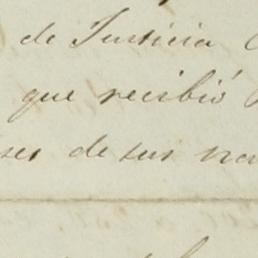 de Justicia
que recibió
ses de sus